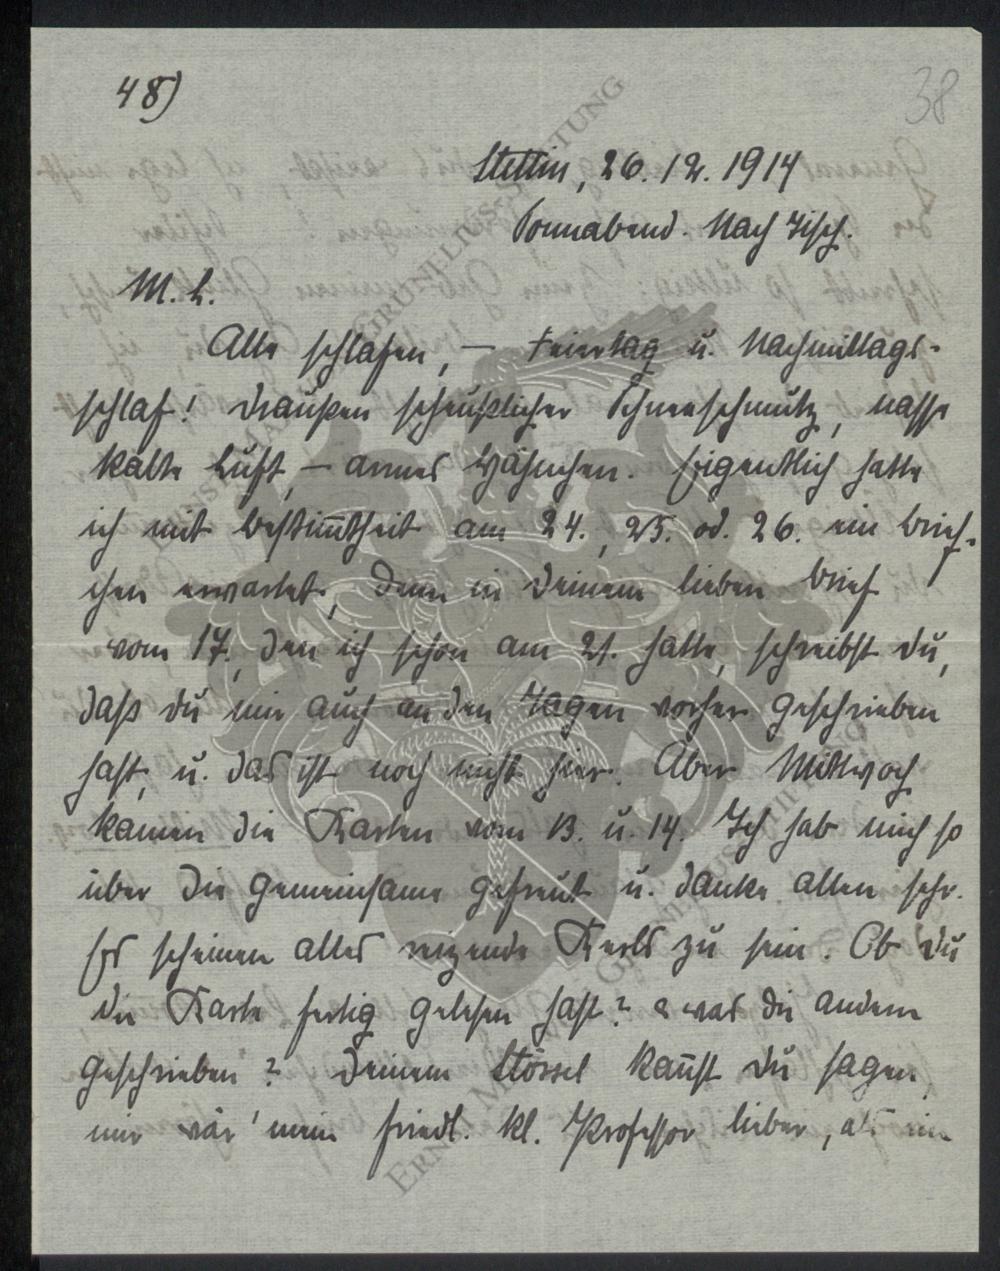 48)
38
Stettin, 26.12.1914
Sonnabend. Nach Tisch.
M. L.
Alle schlafen, — Feiertag u. Nachmittags-
schlaf! Draußen scheußlicher Schneeschmutz, nasse
kalte Luft, — armes Hähnchen. Eigentlich hatte
ich mit Bestim̄theit am 24., 25. od. 26. ein Brief-
chen erwartet, denn in Deinem lieben Brief
vom 17., den ich schon am 21. hatte, schreibst Du,
daß Du mir auch an den Tagen vorher geschrieben
hast, u. das ist noch nicht hier. Aber Mittwoch
kamen die Karten vom 13. u. 14. Ich hab mich so
über die gemeinsame gefreut u. danke allen sehr.
Es scheinen alles reizende Kerls zu sein. Ob Du
die Karte fertig gelesen hast? & was die andern
geschrieben? Deinem Stössel kan̄st Du sagen,
mir wär' mein friedl. kl. Professor lieber, als ein
ERNST MORITZ GRUNELIUS-STIFTUNG